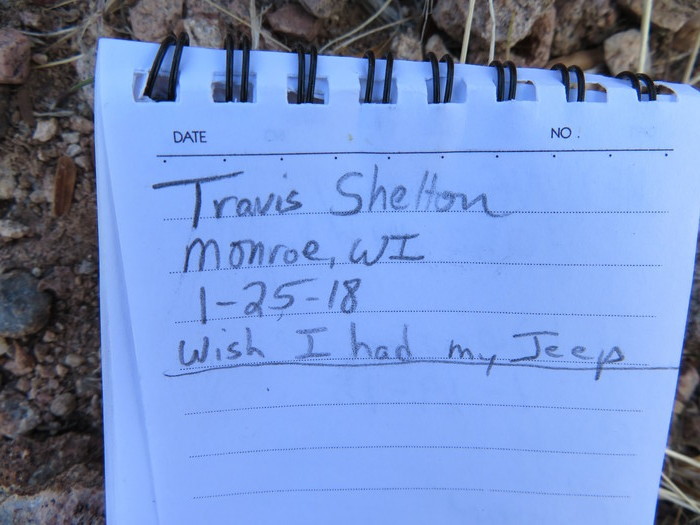 DATE NO.
Travis Shelton
Monroe, WI
1-25-18
Wish I had my Jeep